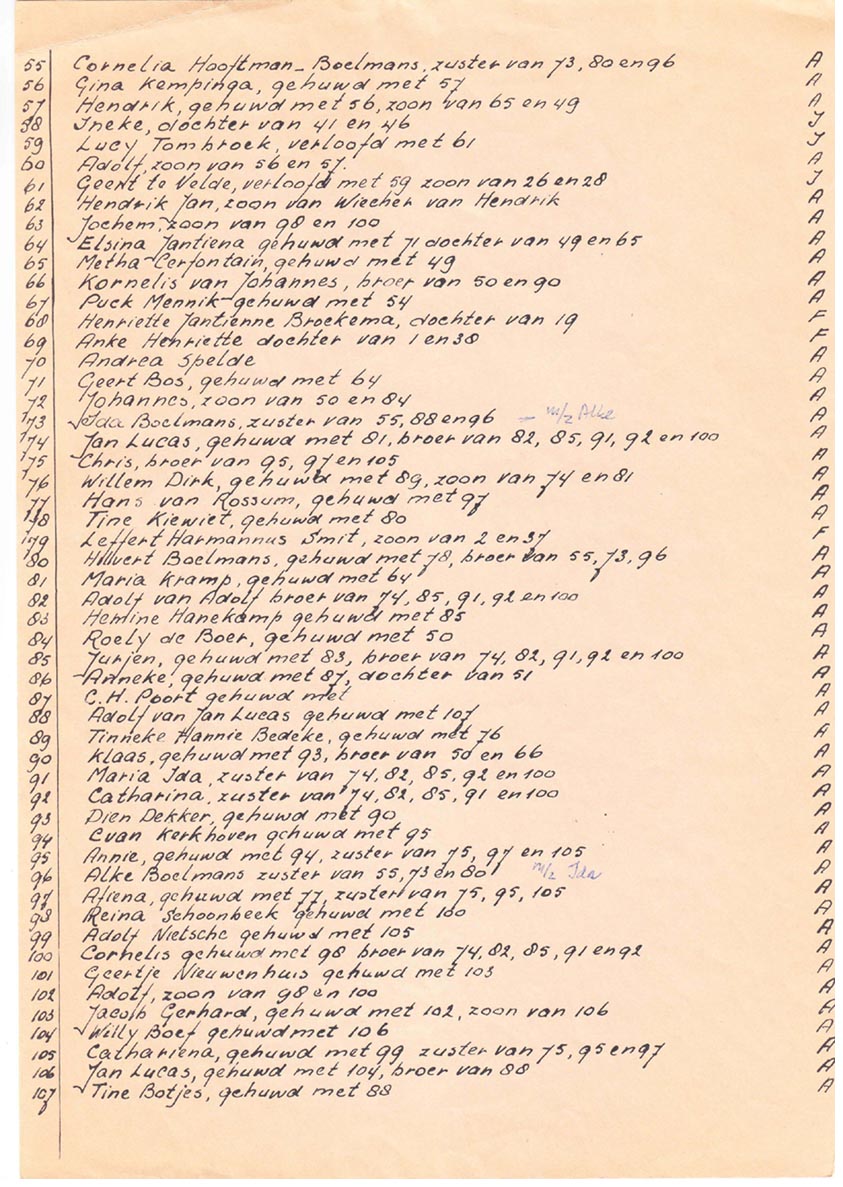 55 Cornelia Hooftman-Boelmans, zuster van 73, 80 en 96 A
56 Gina Kempinga, gehuwd met 57 A
57 Hendrik, gehuwd met 56, zoon van 65 en 49 A
58 Ineke, dochter van 41 en 46 J
59 Lucy Tombroek, verloofd met 61 J
60 Adolf, zoon van 56 en 57. A
61 Geert te Velde, verloofd met 59 zoon van 26 en 28 J
62 Hendrik Jan, zoon van Wiecher van Hendrik A
63 Jochem, zoon van 98 en 100 A
64 Elsina Jantiena gehuwd met 71 dochter van 49 en 65 A
65 Metha Cerfontain, gehuwd met 49 A
66 Kornelis van Johannes, broer van 50 en 90 A
67 Puck Mennik gehuwd met 54 A
68 Henriette Jantienne Broekema, dochter van 19 F
69 Anke Henriette dochter van 1 en 38 F
70 Andrea Spelde A
71 Geert Bos, gehuwd met 64 A
72 Johannes, zoon van 50 en 84 A
73 Ida Boelmans, zuster van 55, 88 en 96 - m/z Alke A
74 Jan Lucas, gehuwd met 81, broer van 82, 85, 91, 92 en 100 A
75 Chris, broer van 95, 97 en 105 A
76 Willem Dirk, gehuwd met 89, zoon van 74 en 81 A
77 Hans van Rossum, gehuwd met 97 A
78 Tine Kiewiet, gehuwd met 80 A
79 Leffert Harmannus Smit, zoon van 2 en 37 F
80 Hilvert Boelmans, gehuwd met 78, broer van 55, 73, 96 A
81 Maria Kramp, gehuwd met 64 A
82 Adolf van Adolf broer van 74, 85, 91, 92 en 100 A
83 Hermine Hanekamp gehuwd met 85 A
84 Roely de Boer, gehuwd met 50 A
85 Jurjen, gehuwd met 83, broer van 74, 82, 91, 92 en 100 A
86 Anneke, gehuwd met 87, dochter van 51 A
87 C.H. Poort gehuwd met A
88 Adolf van Jan Lucas gehuwd met 107 A
89 Tinneke Hannie Bedeke, gehuwd met 76 A
90 Klaas, gehuwd met 93, broer van 50 en 66 A
91 Maria Ida, zuster van 74, 82, 85, 92 en 100 A
92 Catharina, zuster van 74, 82, 85, 91 en 100 A
93 Dien Dekker, gehuwd met 90 A
94 E van Kerkhoven gehuwd met 95 A
95 Annie, gehuwd met 94, zuster van 75, 97 en 105 A
96 Alke Boelmans zuster van 55, 73 en 80 m/z Ida A
97 Afiena, gehuwd met 77, zuster van 75, 95, 105 A
98 Reina Schoonbeek gehuwd met 100 A
99 Adolf Nietsche gehuwd met 105 A
100 Cornelis gehuwd met 98 broer van 74, 82, 85, 91 en 92 A
101 Geertje Nieuwenhuis gehuwd met 103 A
102 Adolf, zoon van 98 en 100 A
103 Jacob Gerhard, gehuwd met 102, zoon van 106 A
104 Willy Boef gehuwd met 106 A
105 Cathariena, gehuwd met 99 zuster van 75, 95 en 97 A
106 Jan Lucas, gehuwd met 104, broer van 88 A
107 Tine Botjes, gehuwd met 88 A